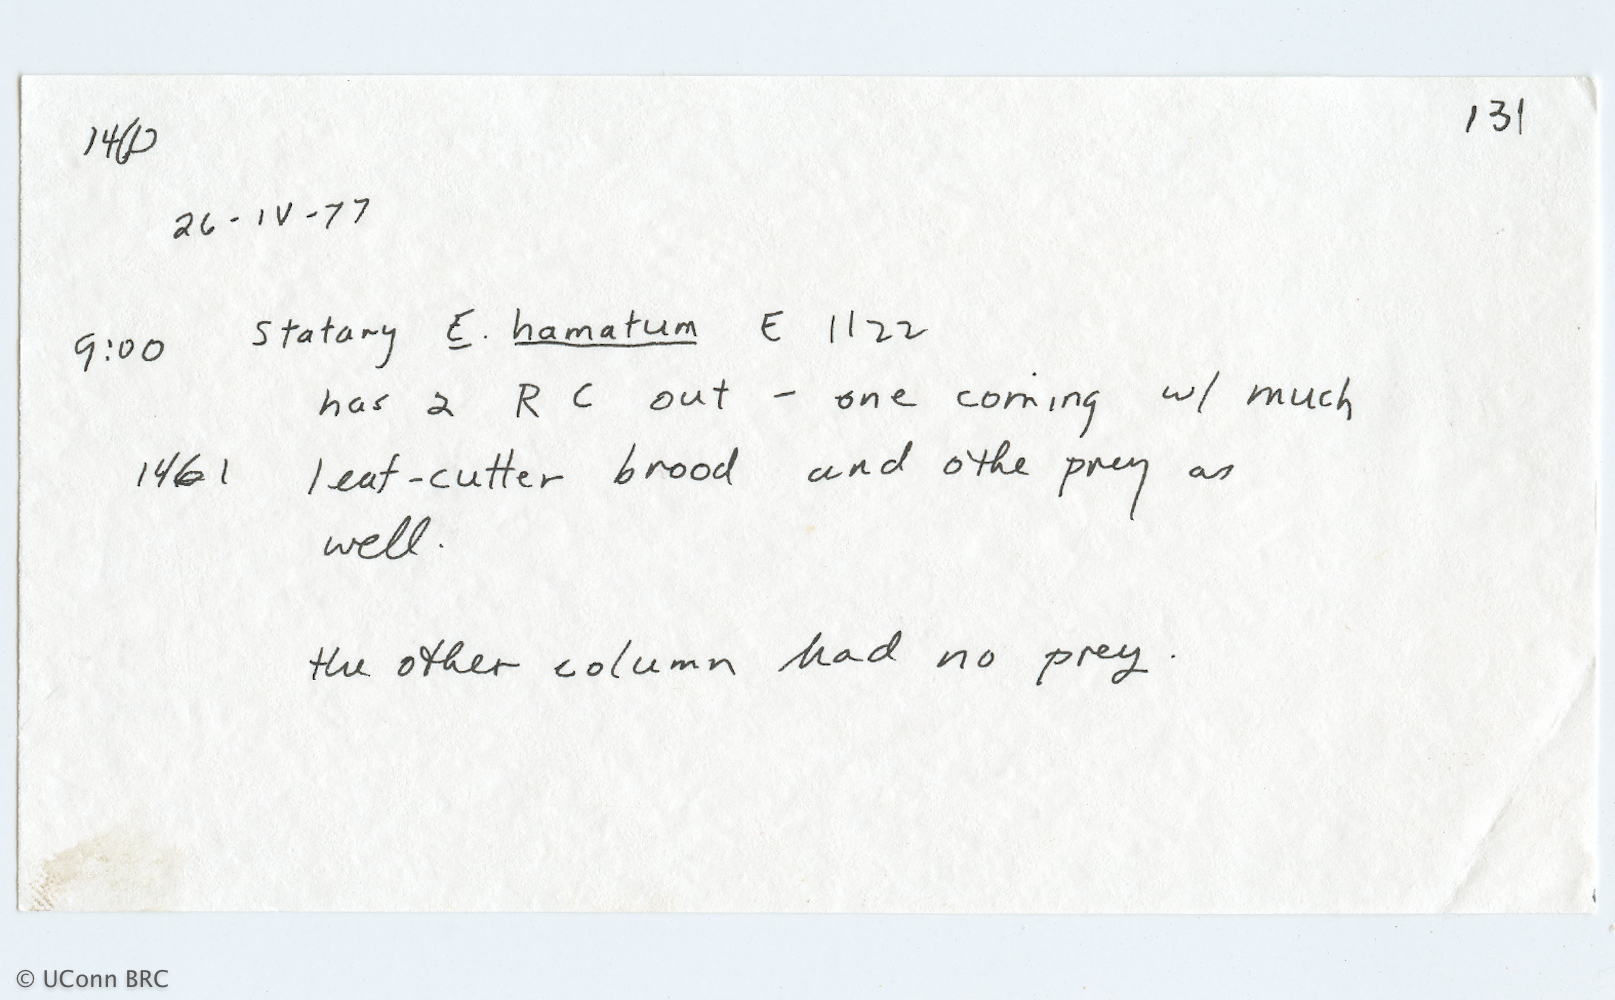 1460
131
26-IV-77
9:00 Statary E. hamatum E 1122
has 2 R C out - one coming w/ much
1461 leaf-cutter brood and othe prey as
well.
the other column had no prey.
© UConn BRC